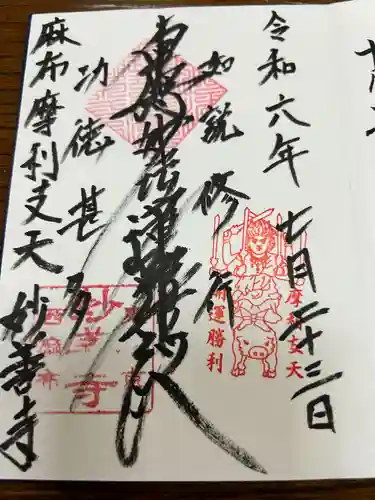 令和六年
七月二十三日
如説修行
南無妙法蓮華経
功徳甚多
麻布摩利支天
妙善寺
開運勝利
摩利支天
妙善寺